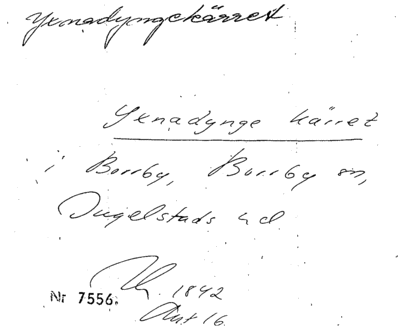 Yxnadyngekärret
Yxnadynge kärret
i Borrby, Borrby sn,
Ingelstads hd
1842
Nr 7556.
Akt 16.